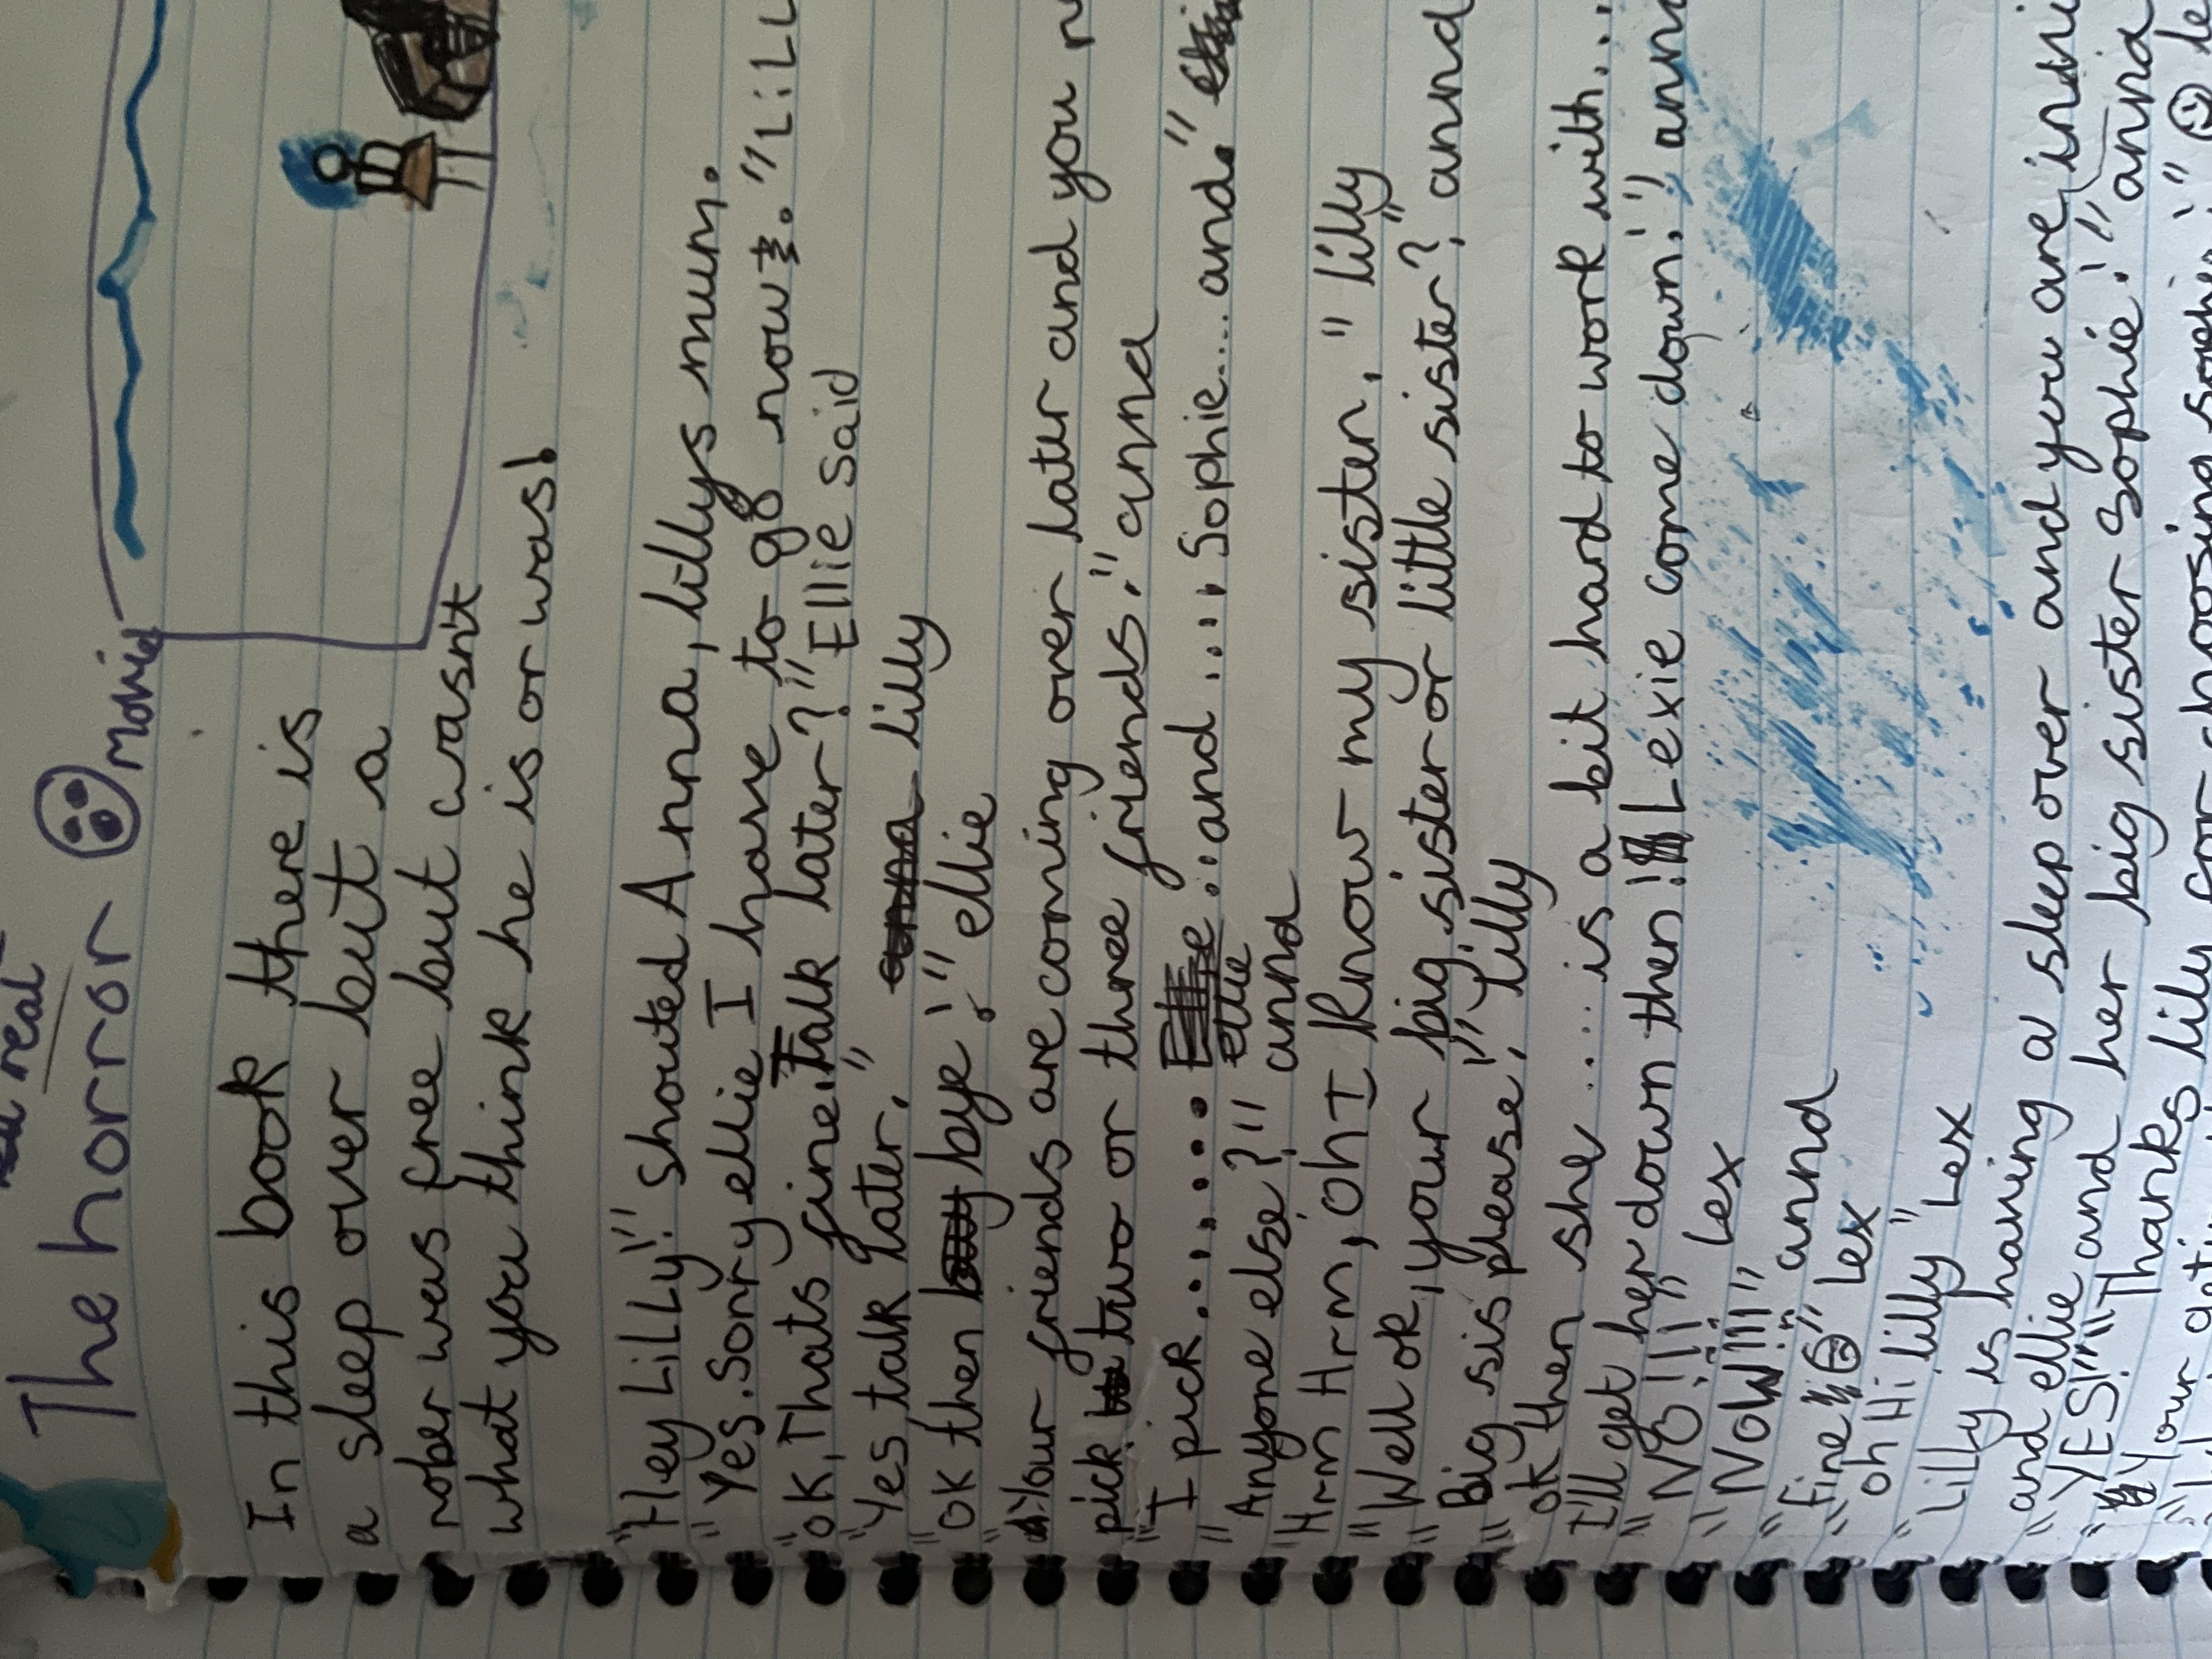 real
The horror movie
In this book there is
a sleep over but a
rober was free but wasn't
what you think he is or was!
"Hey LiLLy!" shouted Anna, lillys mum.
"Yes. Sorry ellie I have to go now. "LiLL
"OK, Thats fine, Talk later?" Ellie said
"Yes talk later," lilly
"OK then bye!" ellie
"Your friends are coming over later and you
pick two or three friends." anna
"I pick....... and.... Sophie.... and."
"Anyone else?" anna
"Hrm Hrm, Oh I know my sister," lilly
"Well ok, your big sister or little sister?, annd
"Big sis please," lilly
ok then she.... is a bit hard to work with...
I'll get her down then! Lexie come down!" ann
"NO!!!" Lex
"NOW!!!" annd
"fine" Lex
oh Hi lilly" Lex
"Lilly is having a sleep over and you are
"and ellie and her big sister Sophie!" anna
"YES!" Thanks lily for choosing sophie!"